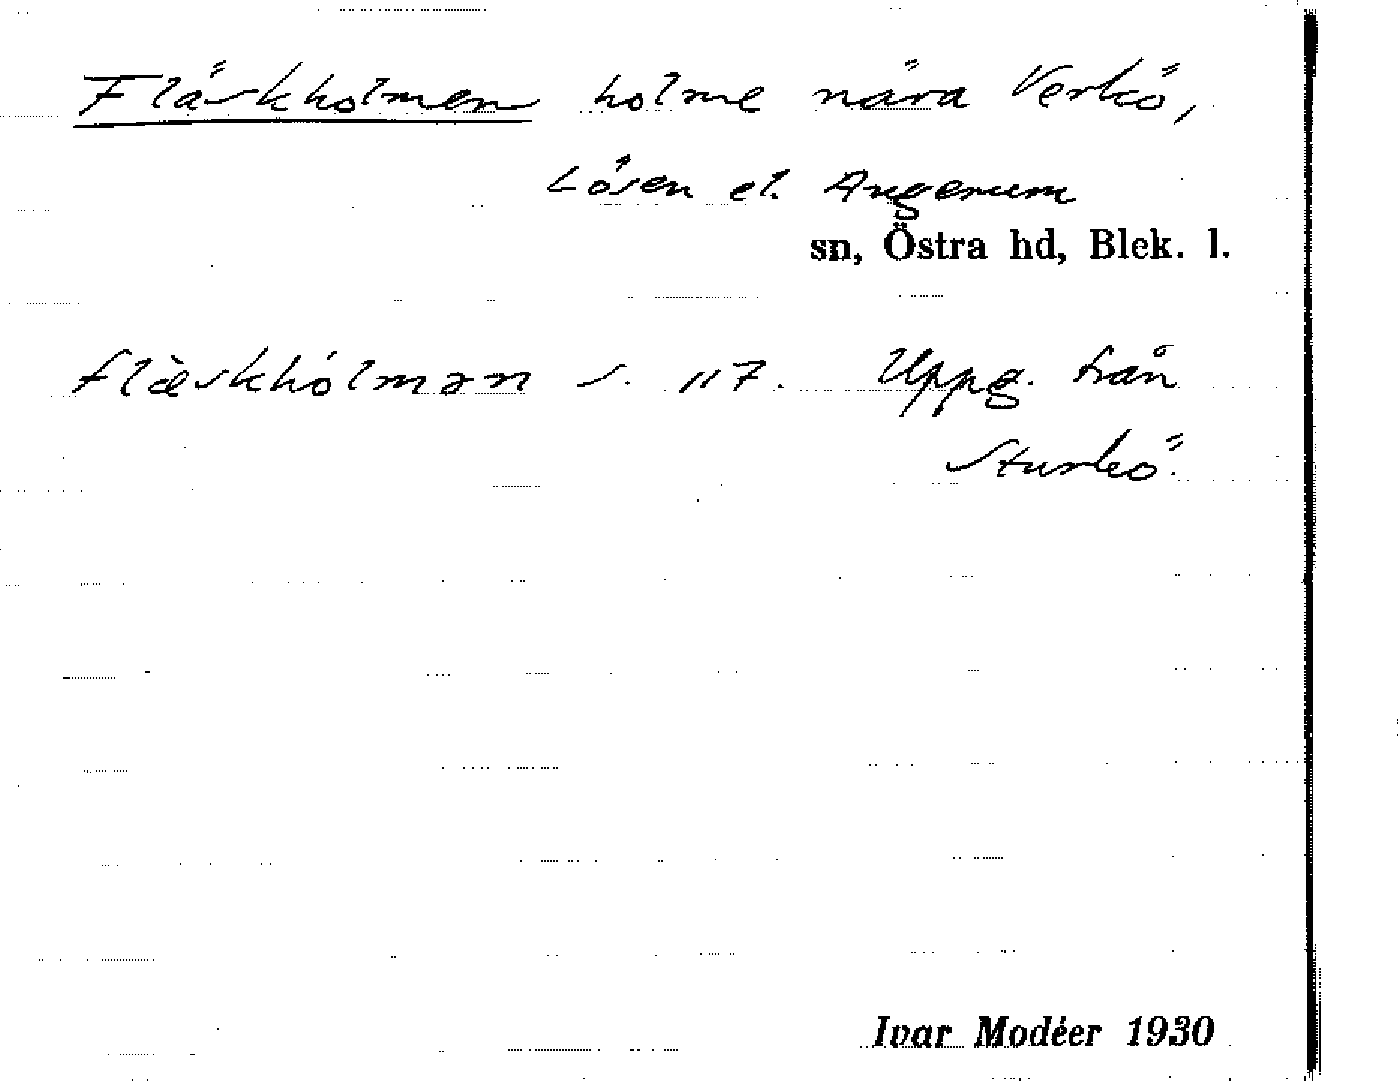 Fläskholmen holme nära Verkö,
Lösen el. Augerum
sn, Östra hd, Blek. l.
flæ̀skhólmən s. 117. Uppg. från
Sturkö.
Ivar Modéer 1930